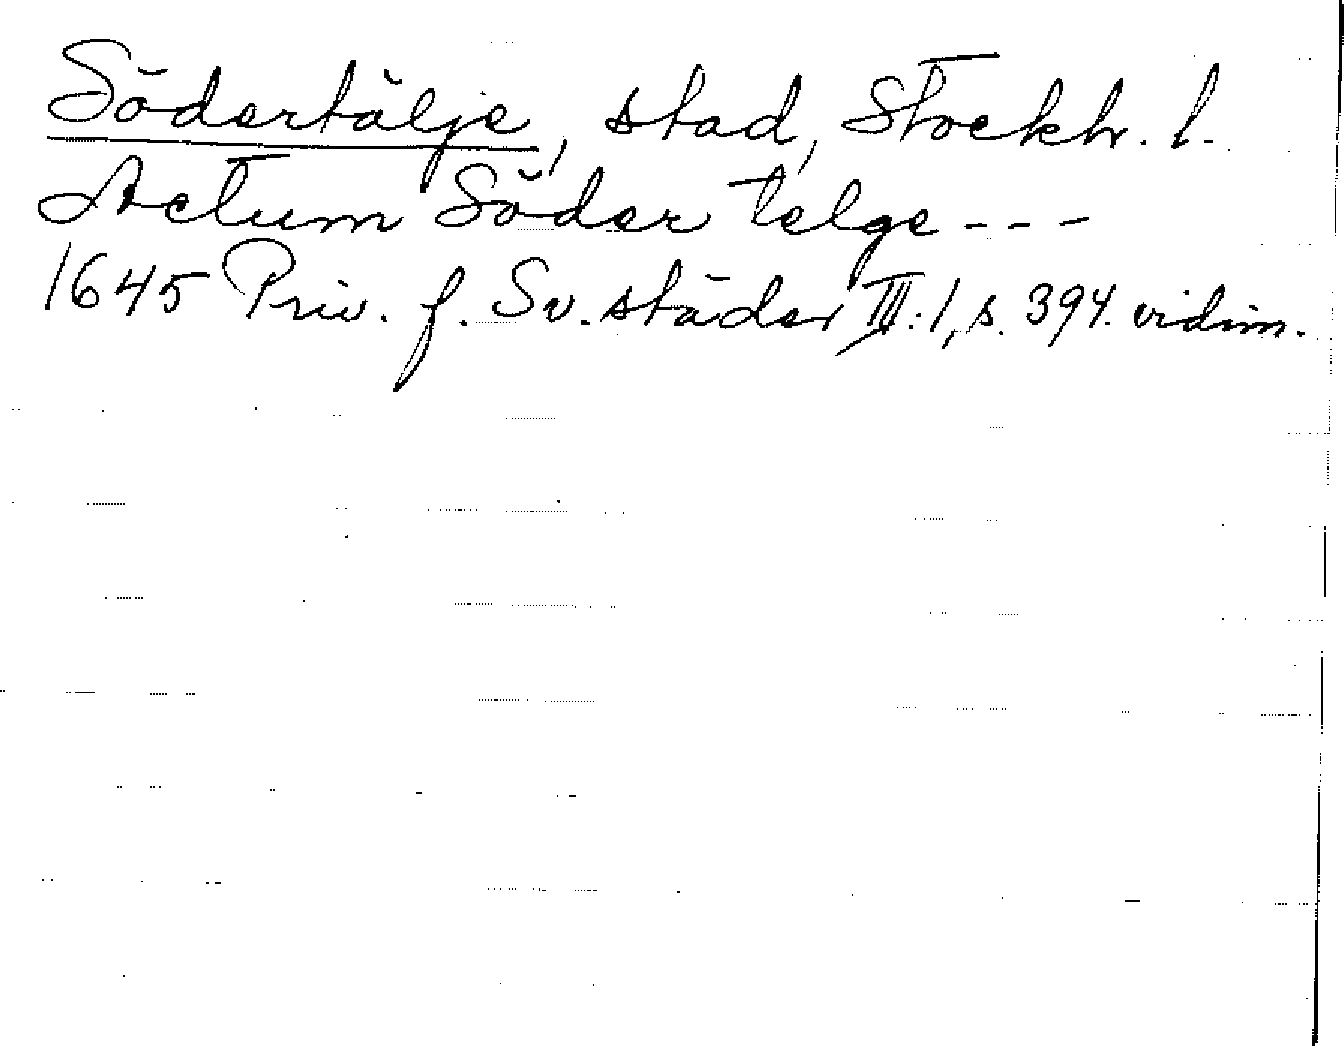 Södertälje, stad, Stockh. l.
Actum Söder telge - - -
1645 Priv. f. Sv. städer III:1, s. 394. vidim.